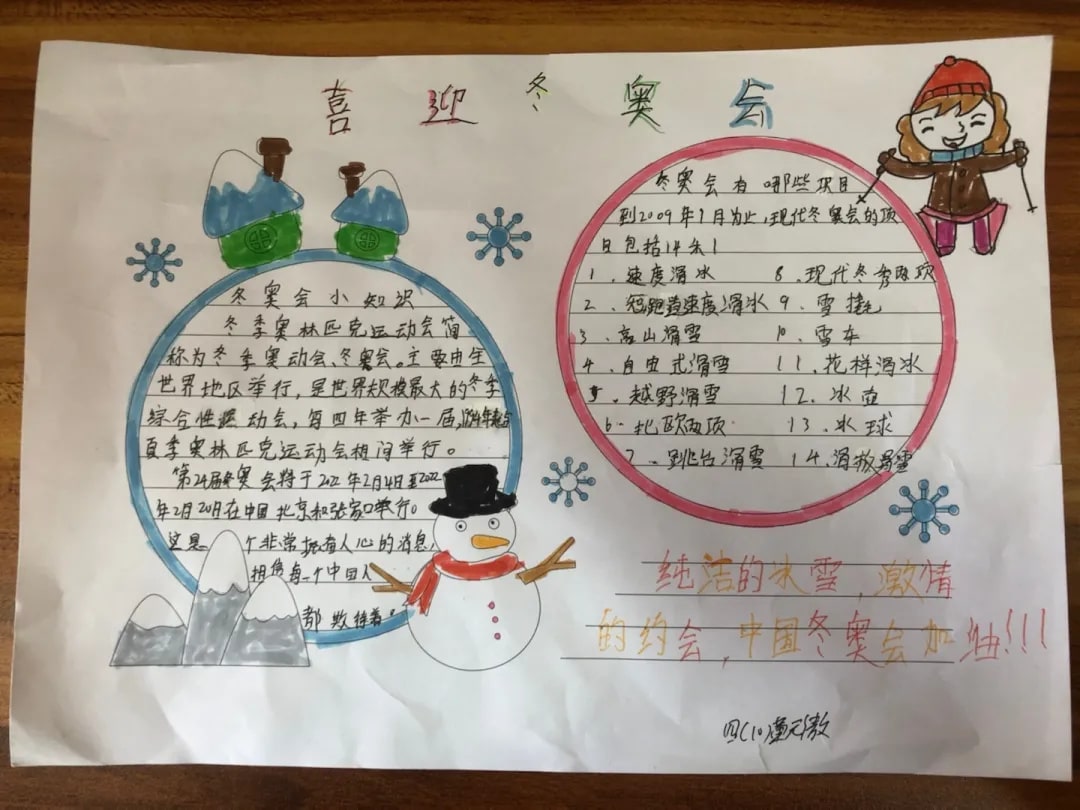 喜迎冬奥会
冬奥会小知识
冬季奥林匹克运动会简
称为冬季奥动会、冬奥会。主要由全
世界地区举行，是世界规模最大的冬季
综合性运动会，每四年举办一届，1994年起与
夏季奥林匹克运动会相间举行。
第24届冬奥会将于2022年2月4日至2022
年2月20日在中国北京和张家口举行。
这是一个非常振奋人心的消息，
相信每一个中国人
都期待着。
冬奥会有哪些项目
到2009年1月为止，现代冬奥会的项
目包括14条！
1、速度滑冰 8、现代冬季两项
2、短跑道速度滑冰 9、雪撬
3、高山滑雪 10、雪车
4、自由式滑雪 11、花样滑冰
5、越野滑雪 12、冰壶
6、北欧两项 13、冰球
7、跳台滑雪 14、滑板滑雪
纯洁的冰雪，激情
的约会，中国冬奥会加油!!!
四(1)